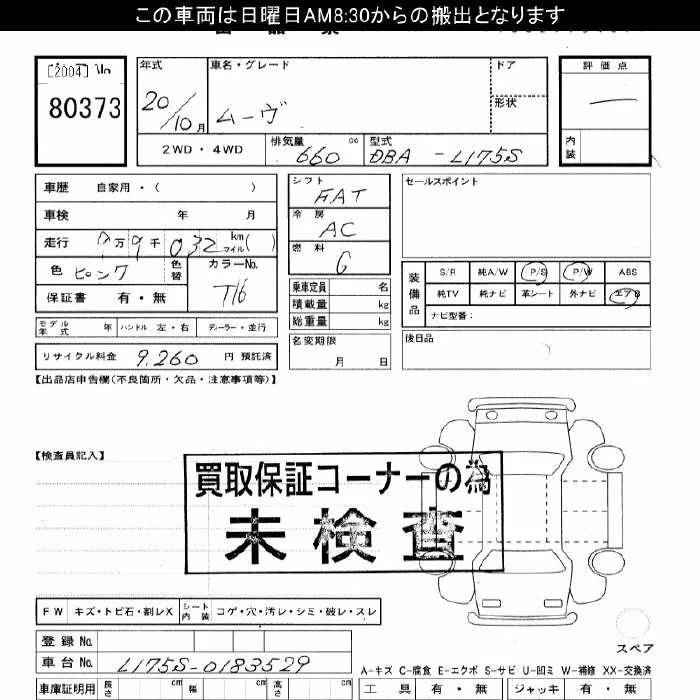 この車両は日曜日AM8:30からの搬出となります
[2004] No
80373
年式 20/10月
車名・グレード ムーヴ
ドア
形状
2WD・4WD
排気量 660 cc
型式 DBA-L175S
評価点
内装
車歴 自家用・( )
車検 年 月
走行 万9千032 km マイル( )
色 ピンク 色替 カラーNo. T16
保証書 有・無
シフト FAT
冷房 AC
燃料 G
乗車定員 名
積載量 kg
総重量 kg
セールスポイント
装備品 S/R 純A/W P/S P/W ABS
純TV 純ナビ 革シート 外ナビ エアB
ナビ型番:
モデル年式 年 ハンドル 左・右 ディーラー・並行
名変期限 月 日
後日品
リサイクル料金 9,260 円 預託済
【出品店申告欄(不良箇所・欠品・注意事項等)】
【検査員記入】
買取保証コーナーの為
未検査
FW キズ・トビ石・割レX シート内装 コゲ・穴・汚レ・シミ・破レ・スレ
登録No.
車台No. L175S-0183529
スペア
A-キズ C-腐食 E-エクボ S-サビ U-凹ミ W-補修 XX-交換済
車庫証明用 長さ cm 幅 cm 高さ cm
工具 有・無 ジャッキ 有・無